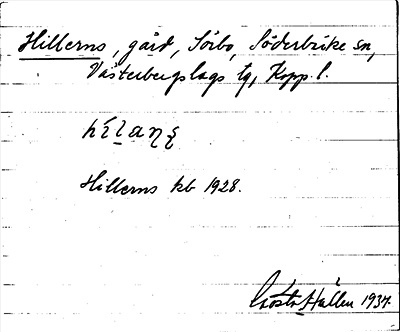 Hillerns, gård, Sörbo, Söderbärke sn,
Västerbergslags tg, Kopp. l.
Hillerns kb 1928.
Gösta Hallen 1934.